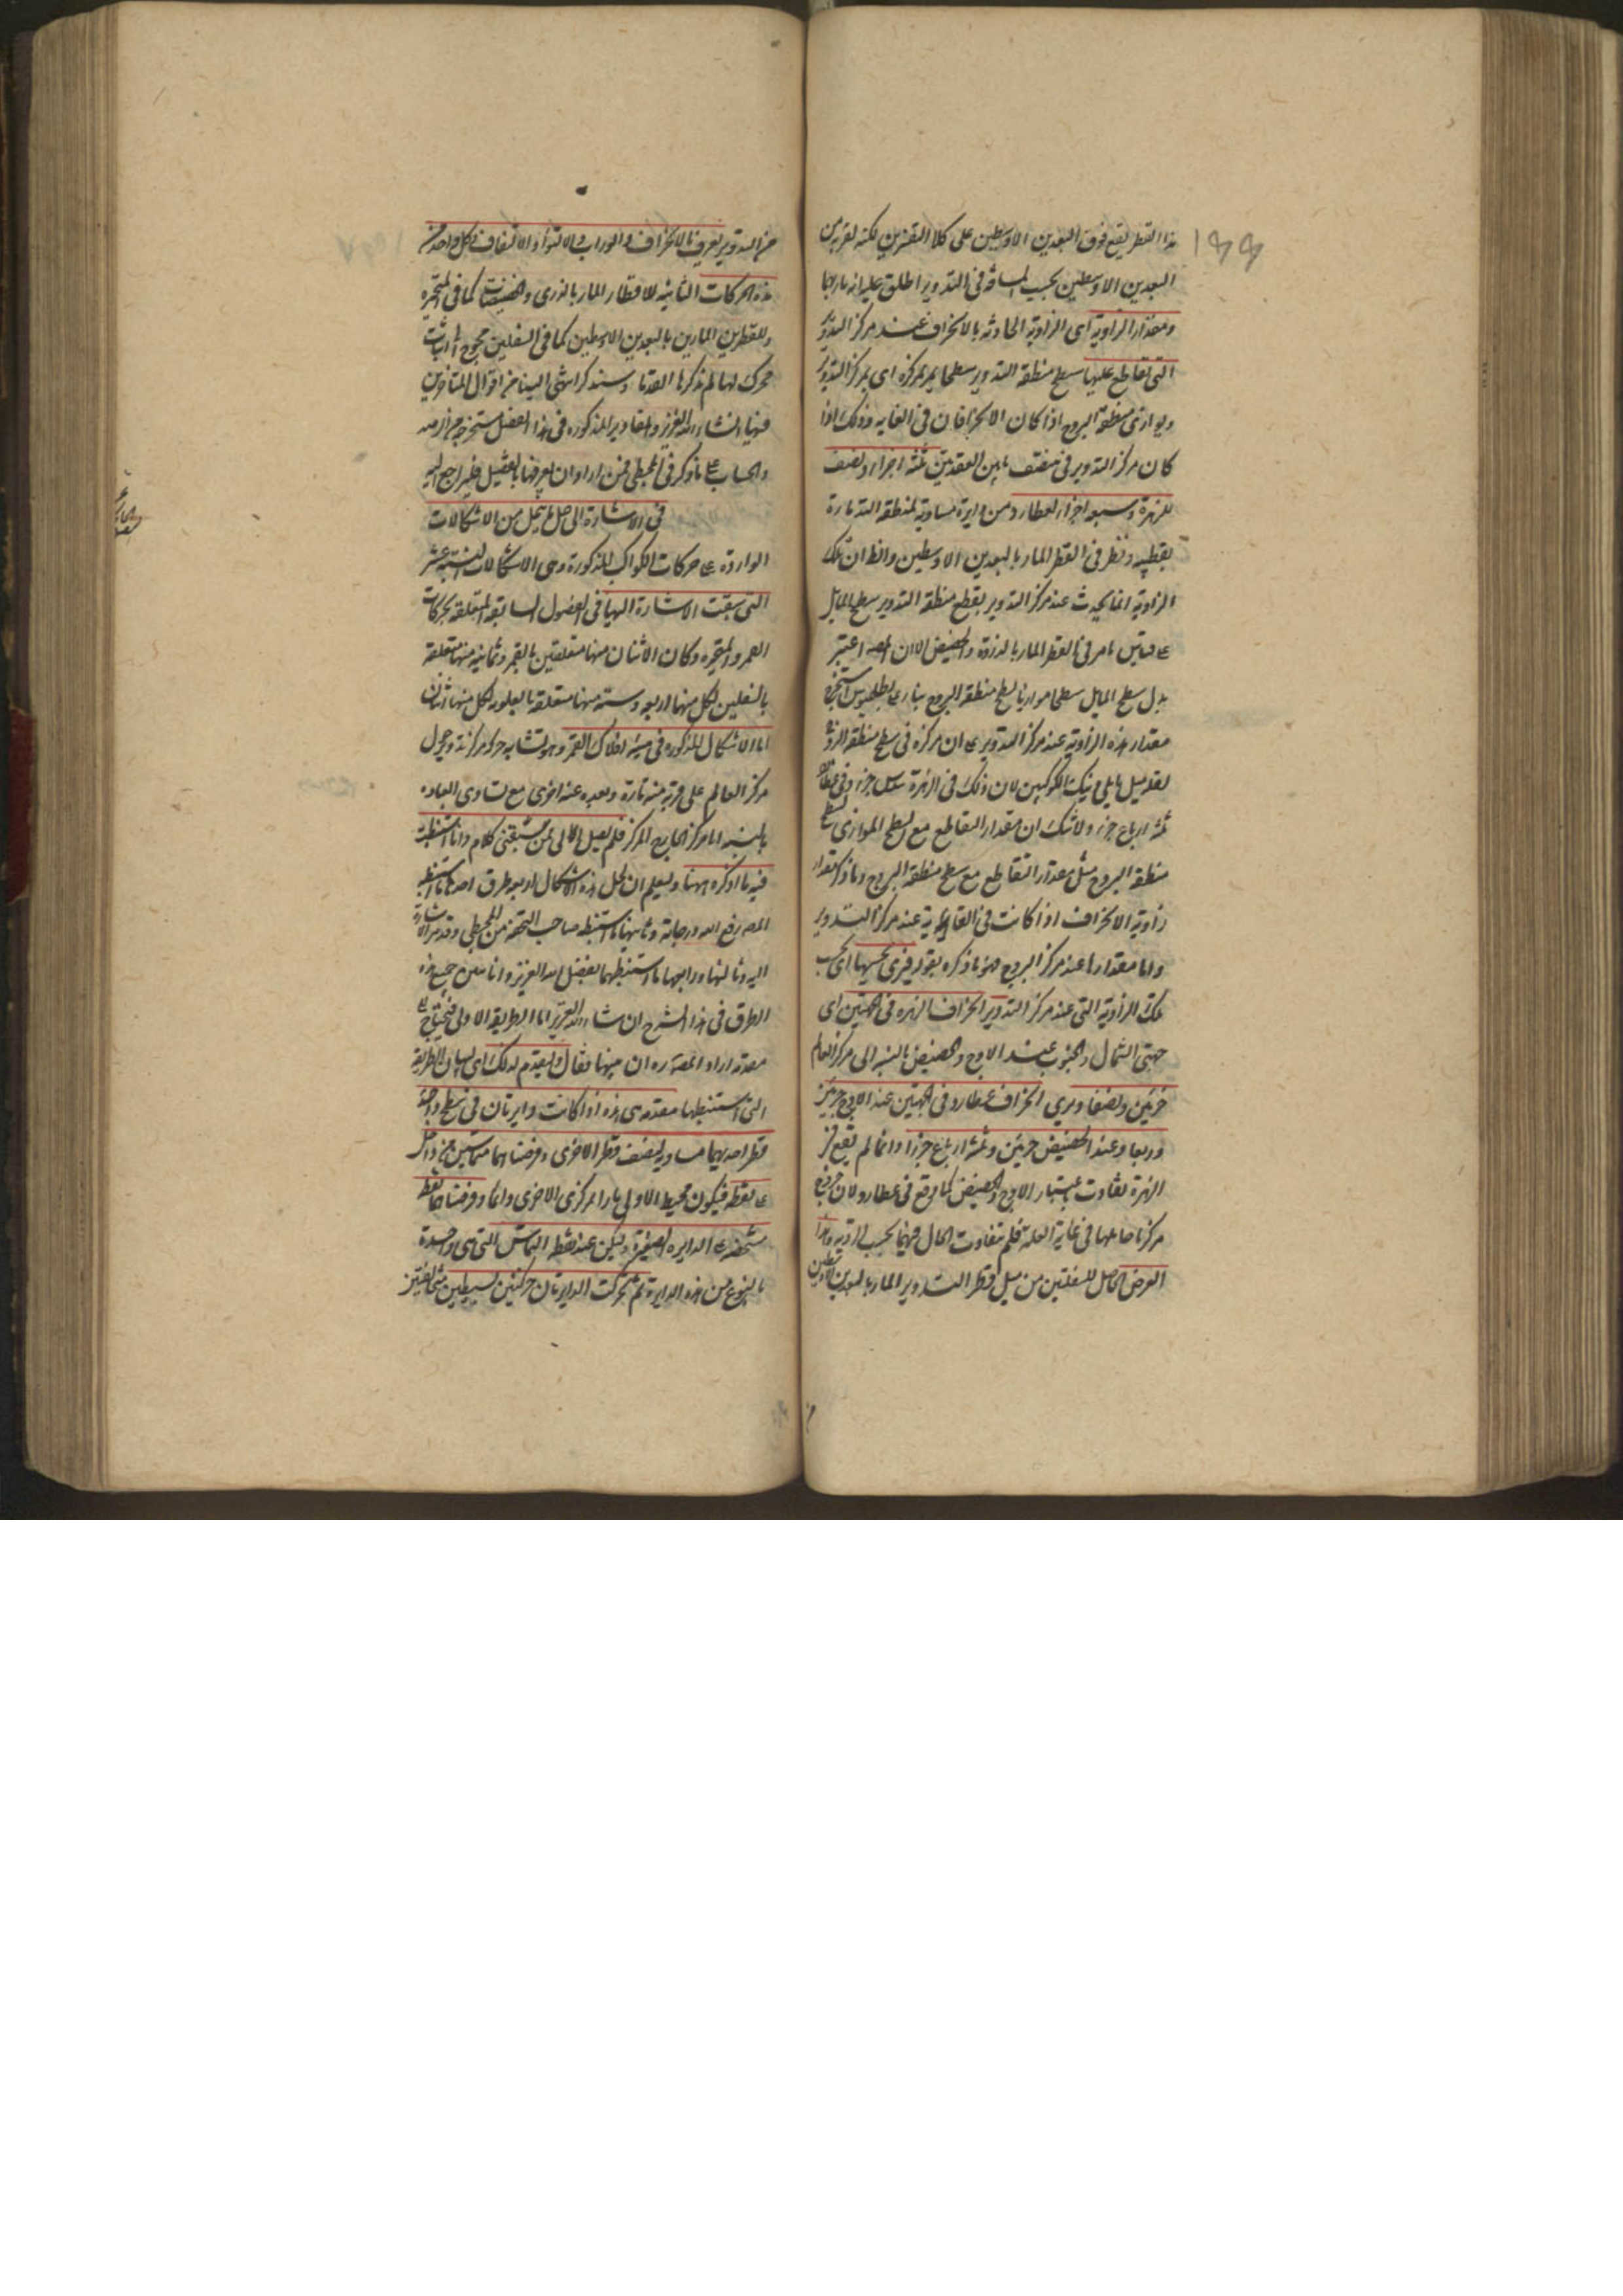 ١٩٩
هذا القطر يقع فوق البعدين الاوسطين على كلا التقديرين لكنه لقربه من
البعدين الاوسطين بحسب المسافة فى التدوير اطلق عليه انه مار بهما
ومقدار الزاوية اى الزاوية الحادثه بالانحراف عند مركز التدوير
التى تقاطع عليها سطح منطقة التدوير سطحا يمر بمركزه اى بمركز التدوير
ويوازى منطقة البروج اذا كان الانحرافان فى الغايه وذلك اذا
كان مركز التدوير فى منتصف ما بين العقدتين ثلثه اجزاء ونصف
للزهرة وسبعه اجزاء لعطارد من دايرة مساوية لمنطقة التد مارة
بقطبيه ونظر فى القطر المار بالبعدين الاوسطين والظ ان تلك
الزاوية انما يحدث عند مركز التدوير بقطع منطقة التدوير سطح المايل
على قياس ما مر فى القطر المار بالذروة والحضيض الا ان المص اعتبر
بدل سطح المايل سطحا موازيا لسطح منطقة البروج بناء على بطلميوس استخرج
مقدار هذه الزاوية عند مركز التدوير على ان مركزه فى سطح منطقة البروج
لقلة ميل مايلى ذينك الكوكبين لان ذلك فى الزهرة سدس جزء وفى عطارد
ثلثة ارباع جزء ولا شك ان مقدار التقاطع مع السطح الموازى لسطح
منطقة البروج مثل مقدار التقاطع مع سطح منطقة البروج وما ذكر مقدار
زاوية الانحراف اذا كانت فى الغاية عند مركز التدوير
واما مقدارها عند مركز البروج فهو ما ذكره بقوله فيرى بحسبها اى بحسب
تلك الزاوية التى عند مركز التدوير انحراف الزهره فى الجهتين اى
جهتى الشمال والجنوب عند الاوج والحضيض بالنسبه الى مركز العالم
جزئين ونصفا ويرى انحراف عطارد فى الجهتين عند الاوج جزئين
وربعا وعند الحضيض جزئين وثلثة ارباع جزء وانما لم يقع فى
الزهرة تفاوت باعتبار الاوج والحضيض كما وقع فى عطارد لان خروج
مركز حاملها فى غاية القلة فلم يتفاوت الحال فيهما بحسب الرؤية وهذا
العرض الحاصل للسفليتين من ميل قطر التدوير المار بالبعدين الاوسطين
من التدوير يعرف بالانحراف والوراب والالتواء والالتفاف ولكل واحد من
هذه الحركات الثابتة للاقطار المار بالذرى والحضيضات كما فى المتحيره
وللقطرين المارين بالبعدين الاوسطين كما فى السفليين يحوج الى اثبات
محرك لها لم يذكرها القدماء وسنذكر ما انتهى الينا من اقوال المتاخرين
فيها انشاء الله العزيز والمقادير المذكوره فى هذا الفصل مستخرجه من الرصد
والحساب على ما ذكر فى المجسطى فمن اراد ان يعرفها بالتفصيل فليرجع اليه
فى الاشارة الى حل ما ينحل من الاشكالات
الواردة على حركات الكواكب المذكورة وهى الاشكالات الستة عشر
التى سبقت الاشارة اليها فى الفصول السابقه المتعلقة بحركات
القمر والمتحيره وكان الاثنان منها متعلقين بالقمر وثمانيه منها متعلقة
بالسفليين لكل منهما اربعه وستة منها متعلقة بالعلويه لكل منها اثنان
اما الاشكال المذكوره فى هيئة افلاك القمر وهو تشابه حركة مركز تدويره حول
مركز العالم على قربه منه تارة وبعده عنه اخرى مع تساوى ابعاده
بالنسبه الى مركز الخارج المركز فلم يصل الى لمن سبقنى كلام وانا استنبطت
فيه ما اذكره ههنا وليعلم ان لحل هذه الاشكال اربعه طرق احدها ما استنبطه
المص رفع الله درجاته وثانيها ما استنبطه صاحب التحفه من المجسطى وقد مر الاشارة
اليه وثالثها ورابعها ما استنبطهما بفضل الله العزيز وانا نبين جميع هذه
الطرق فى هذا الشرح ان شاء الله العزيز اما الطريقة الاولى فيحتاج الى
مقدمة اراد المصنف ره ان يبينها فقال وليقدم لذلك اى لبيان الطريقة
التى استنبطها مقدمه هى هذه اذا كانت دايرتان فى سطح واحد
قطر احديهما مساو لنصف قطر الاخرى وفرضتا هما متماسين من داخل
على نقطة فيكون محيط الاولى مارا بمركزى الاخرى وانما وفرضتا هما نقطه
متحركه على الدايره الصغيرة وليكن عند نقطة التماس التى هى واحدة
بالنوع من هذه الدايرة ثم تحركت الدايرتان حركتين بسيطتين مختلفتين